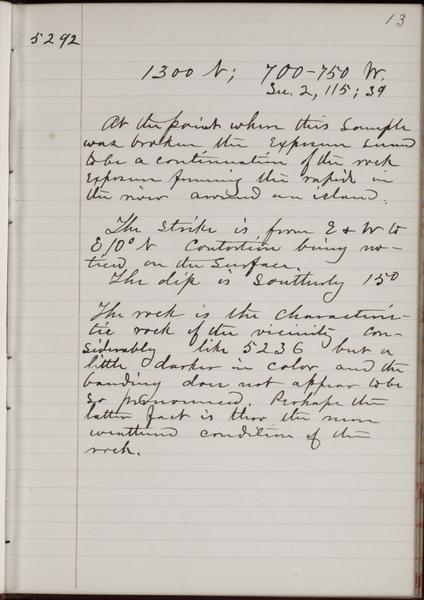 13
5292
1300 N; 700-750 W.
Sec. 2, 115; 39
At the point where this sample
was broken the exposure seemed
to be a continuation of the rock
exposure forming the rapids in
the river around an island.
The strike is from E & W to
E 10° N Contortion being no-
ticed on the surface.
The dip is Southerly 15°
The rock is the characteris-
tic rock of the vicinity con-
siderably like 5236 but a
little darker in color and the
banding does not appear to be
so pronounced. Perhaps the
latter fact is thro the more
weathered condition of the
rock.